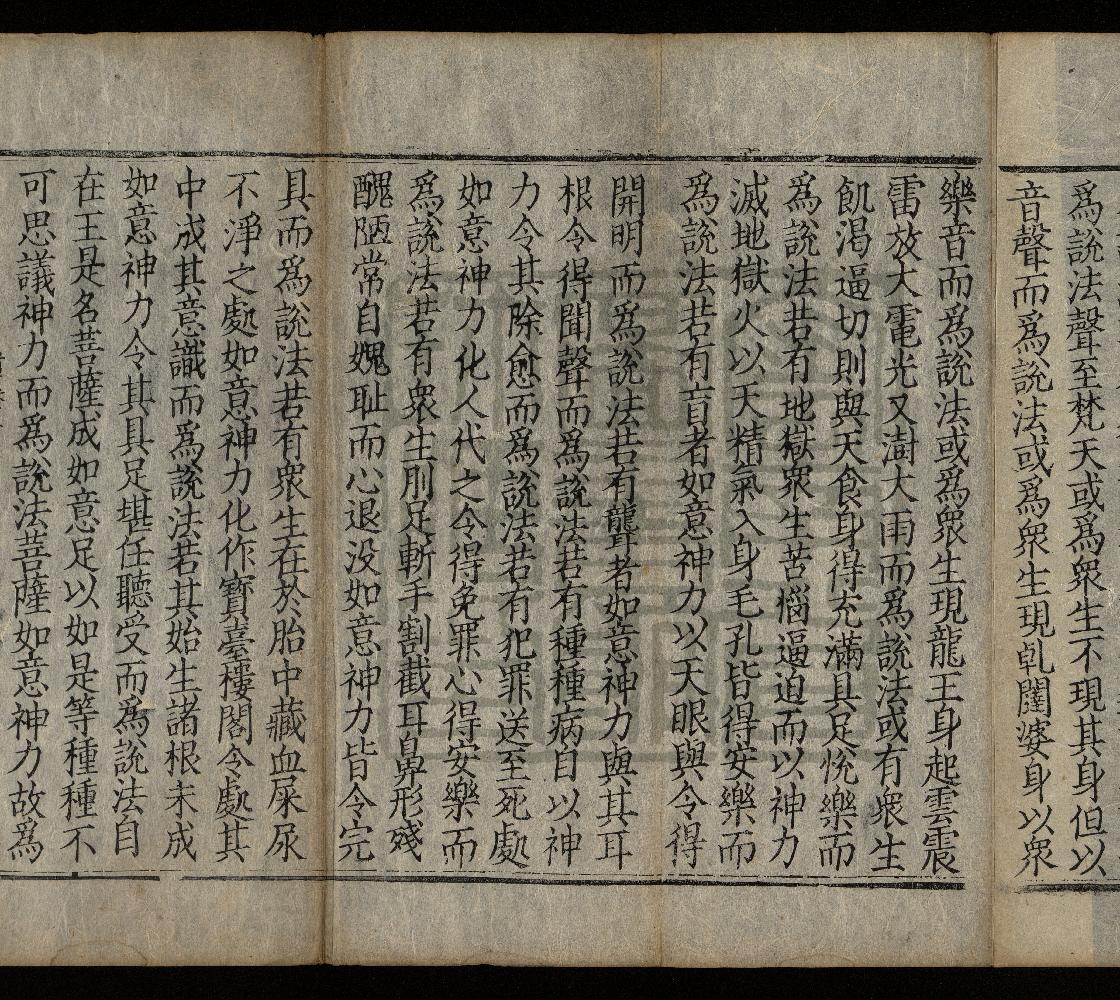 爲說法聲至梵天或爲衆生不現其身但以
音聲而爲說法或爲衆生現乹闥婆身以衆
樂音而爲說法或爲衆生現龍王身起雲震
雷放大電光又澍大雨而爲說法或有衆生
飢渴逼切則與天食身得充滿具足恱樂而
爲說法若有地獄衆生苦惱逼迫而以神力
滅地獄火以天精氣入身毛孔皆得安樂而
爲說法若有盲者如意神力以天眼與令得
開明而爲說法若有聾者如意神力與其耳
根令得聞聲而爲說法若有種種病自以神
力令其除愈而爲說法若有犯罪送至死處
如意神力化人代之令得免罪心得安樂而
爲說法若有衆生刖足斬手割截耳鼻形殘
醜陋常自媿耻而心退没如意神力皆令完
具而爲說法若有衆生在於胎中藏血屎尿
不淨之處如意神力化作寶臺樓閣令處其
中成其意識而爲說法若其始生諸根未成
如意神力令其具足堪任聽受而爲說法自
在王是名菩薩成如意足以如是等種種不
可思議神力而爲說法菩薩如意神力故爲